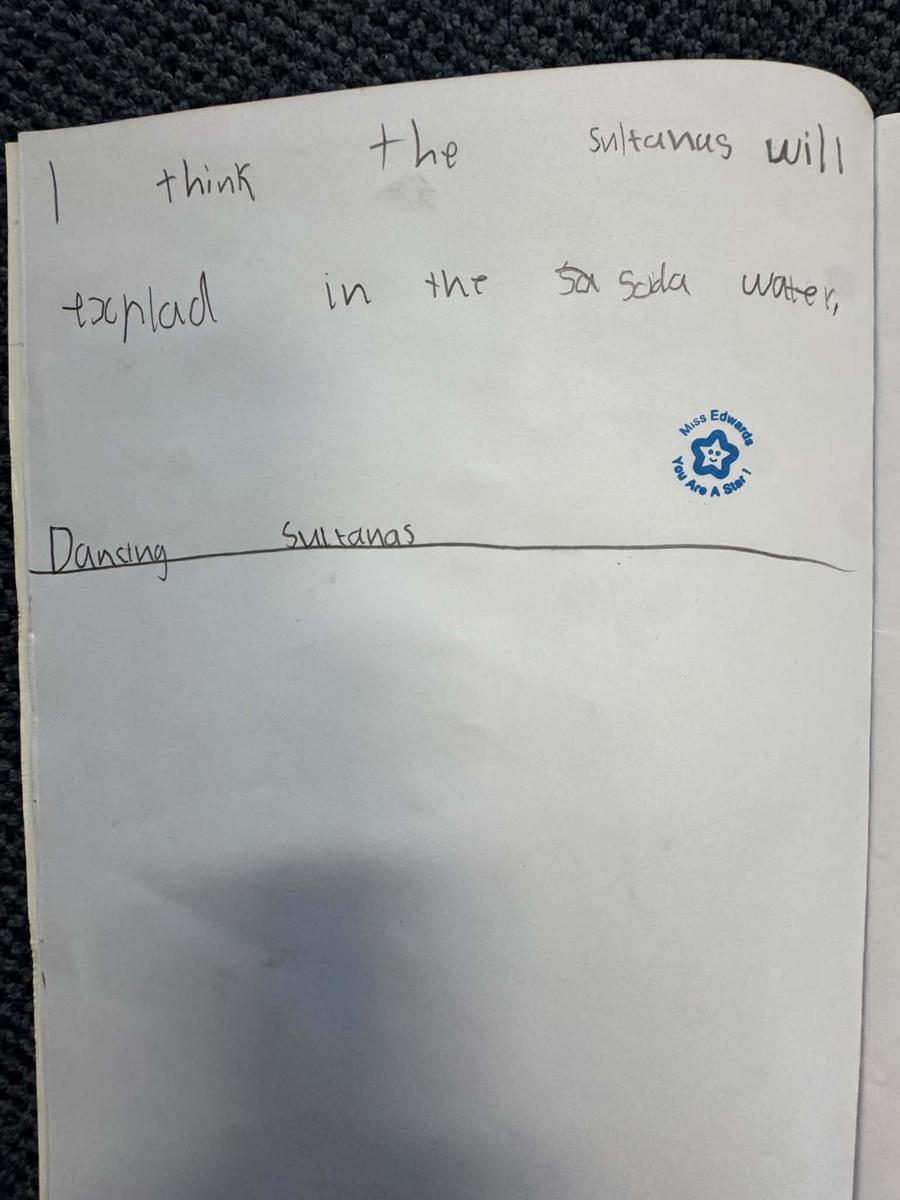 I think the sultanas will
explad in the sa soda water,
Miss Edwards
You Are A Star!
Dancing Sultanas